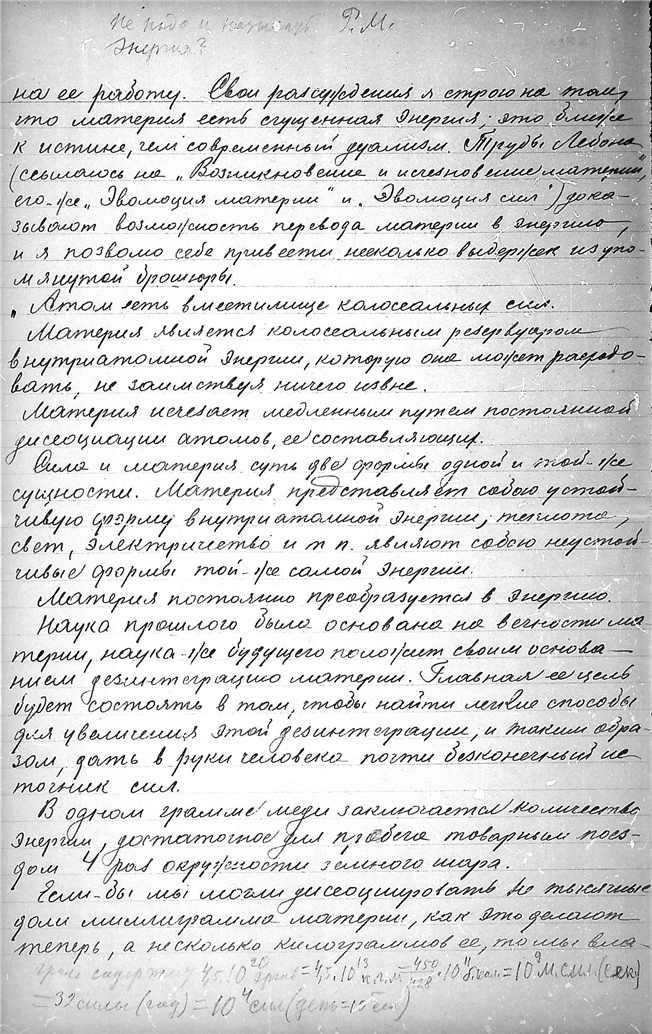 Не надо и называть Г. М.
Энергия?
на ее работу. Свои разсуждения я строю на том,
что материя есть сгущенная энергия; это ближе
к истине, чем современный дуализм. Труды Лебона
(ссылаюсь на „Возникновение и исчезновение материи",
его-же „Эволюция материи" и „Эволюция сил") дока-
зывают возможность перевода материи в энергию,
и я позволю себе привести несколько выдержек из упо-
мянутой брошюры.
„Атом есть вместилище колоссальных сил.
Материя является колоссальным резервуаром
внутриатомной энергии, которую она может расходо-
вать, не заимствуя ничего извне.
Материя исчезает медленным путем постоянной
диссоциации атомов, ее составляющих.
Сила и материя суть две формы одной и той-же
сущности. Материя представляет собою устой-
чивую форму внутриатомной энергии; теплота,
свет, электричество и т п. являют собою неустой-
чивые формы той-же самой энергии.
Материя постоянно преобразуется в энергию.
Наука прошлого была основана на вечности ма-
терии, наука-же будущего положит своим основа-
нием дезинтеграцию материи. Главная ее цель
будет состоять в том, чтобы найти легкие способы
для увеличения этой дезинтеграции, и таким обра-
зом, дать в руки человека почти безконечный ис
точник сил.
В одном грамме меди заключается количество
энергии, достаточное для пробега товарным поез-
дом 4 раз окружности земного шара.
Если-бы мы могли диссоциировать не тысячные
доли миллиграмма материи, как это делают
теперь, а несколько килограммов ее, то мы вла-
содержит 4,5.10²⁰ эргов = 4,5.10¹³ к.г.м = 10⁹ М. сил. (сек)
= 32 силы (год) = 10⁴ сил (день =